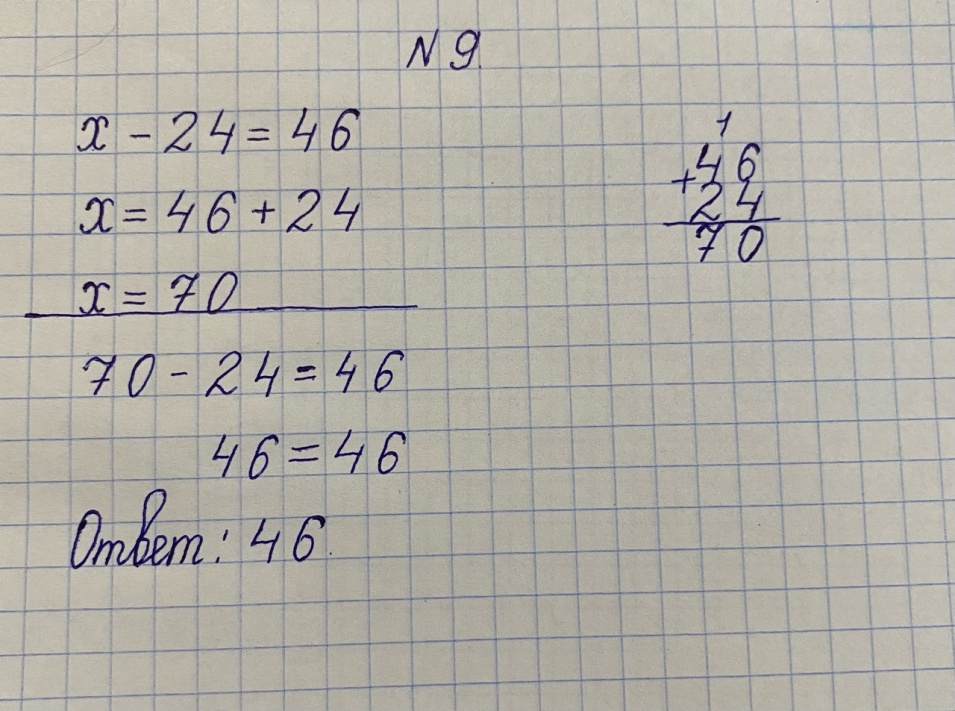 N 9.
x - 24 = 46
x = 46 + 24
x = 70
70 - 24 = 46
46 = 46
Ответ: 46.
1
+46
24
70